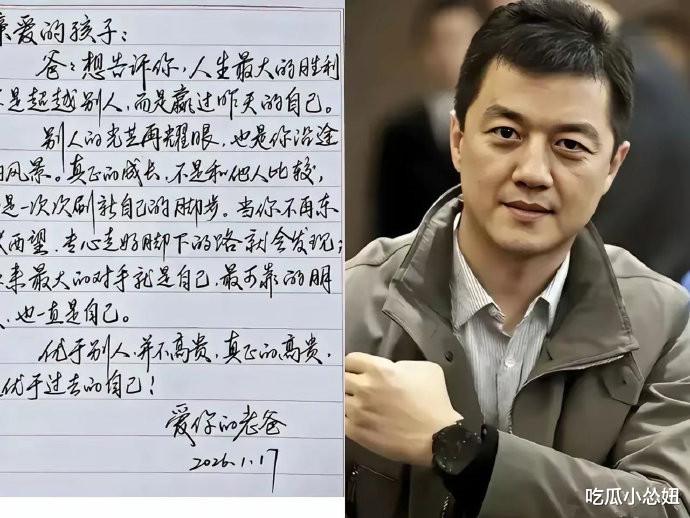 亲爱的孩子：
爸爸想告诉你，人生最大的胜利
不是超越别人，而是赢过昨天的自己。
别人的光芒再耀眼，也是你沿途
的风景。真正的成长，不是和他人比较，
是一次次刷新自己的脚步。当你不再东
张西望，专心走好脚下的路就会发现：
原来最大的对手就是自己，最可靠的朋
友，也一直是自己。
优于别人，并不高贵，真正的高贵，
是优于过去的自己！
爱你的老爸
2026.1.17
吃瓜小怂妞